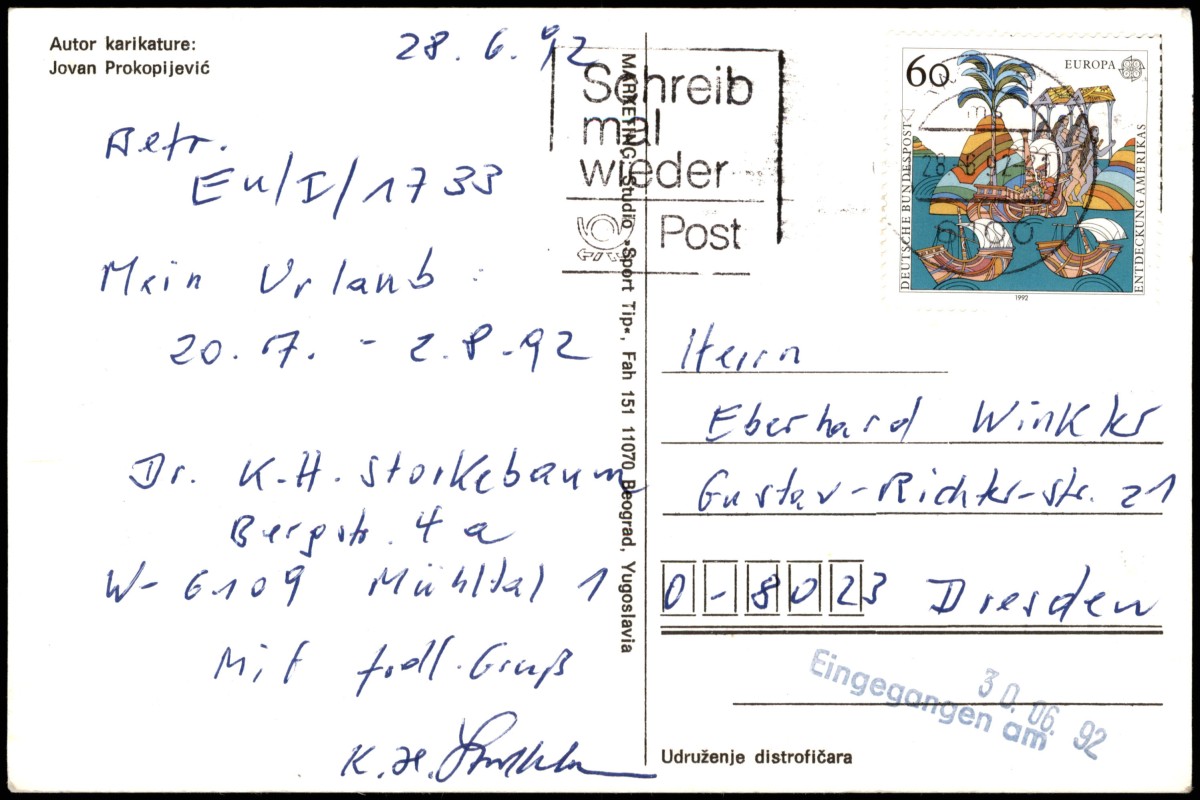 Autor karikature:
Jovan Prokopijević
28.6.92
Betr.
Eu/I/1733
Mein Urlaub:
20.7. - 2.8.92
Dr. K.-H. Storkebaum
Bergstr. 4a
W-6109 Mühltal 1
Mit frdl. Gruß
K. H.
MARKETING Studio »Sport Tip«, Fah 151 11070 Beograd, Yugoslavia
Schreib
mal
wieder
Post
60
EUROPA
DEUTSCHE BUNDESPOST
ENTDECKUNG AMERIKAS
1992
28.6.92
Herrn
Eberhard Winkler
Gustav-Richter-Str. 21
O-8023 Dresden
Eingegangen am
30.06.92
Udruženje distrofičara